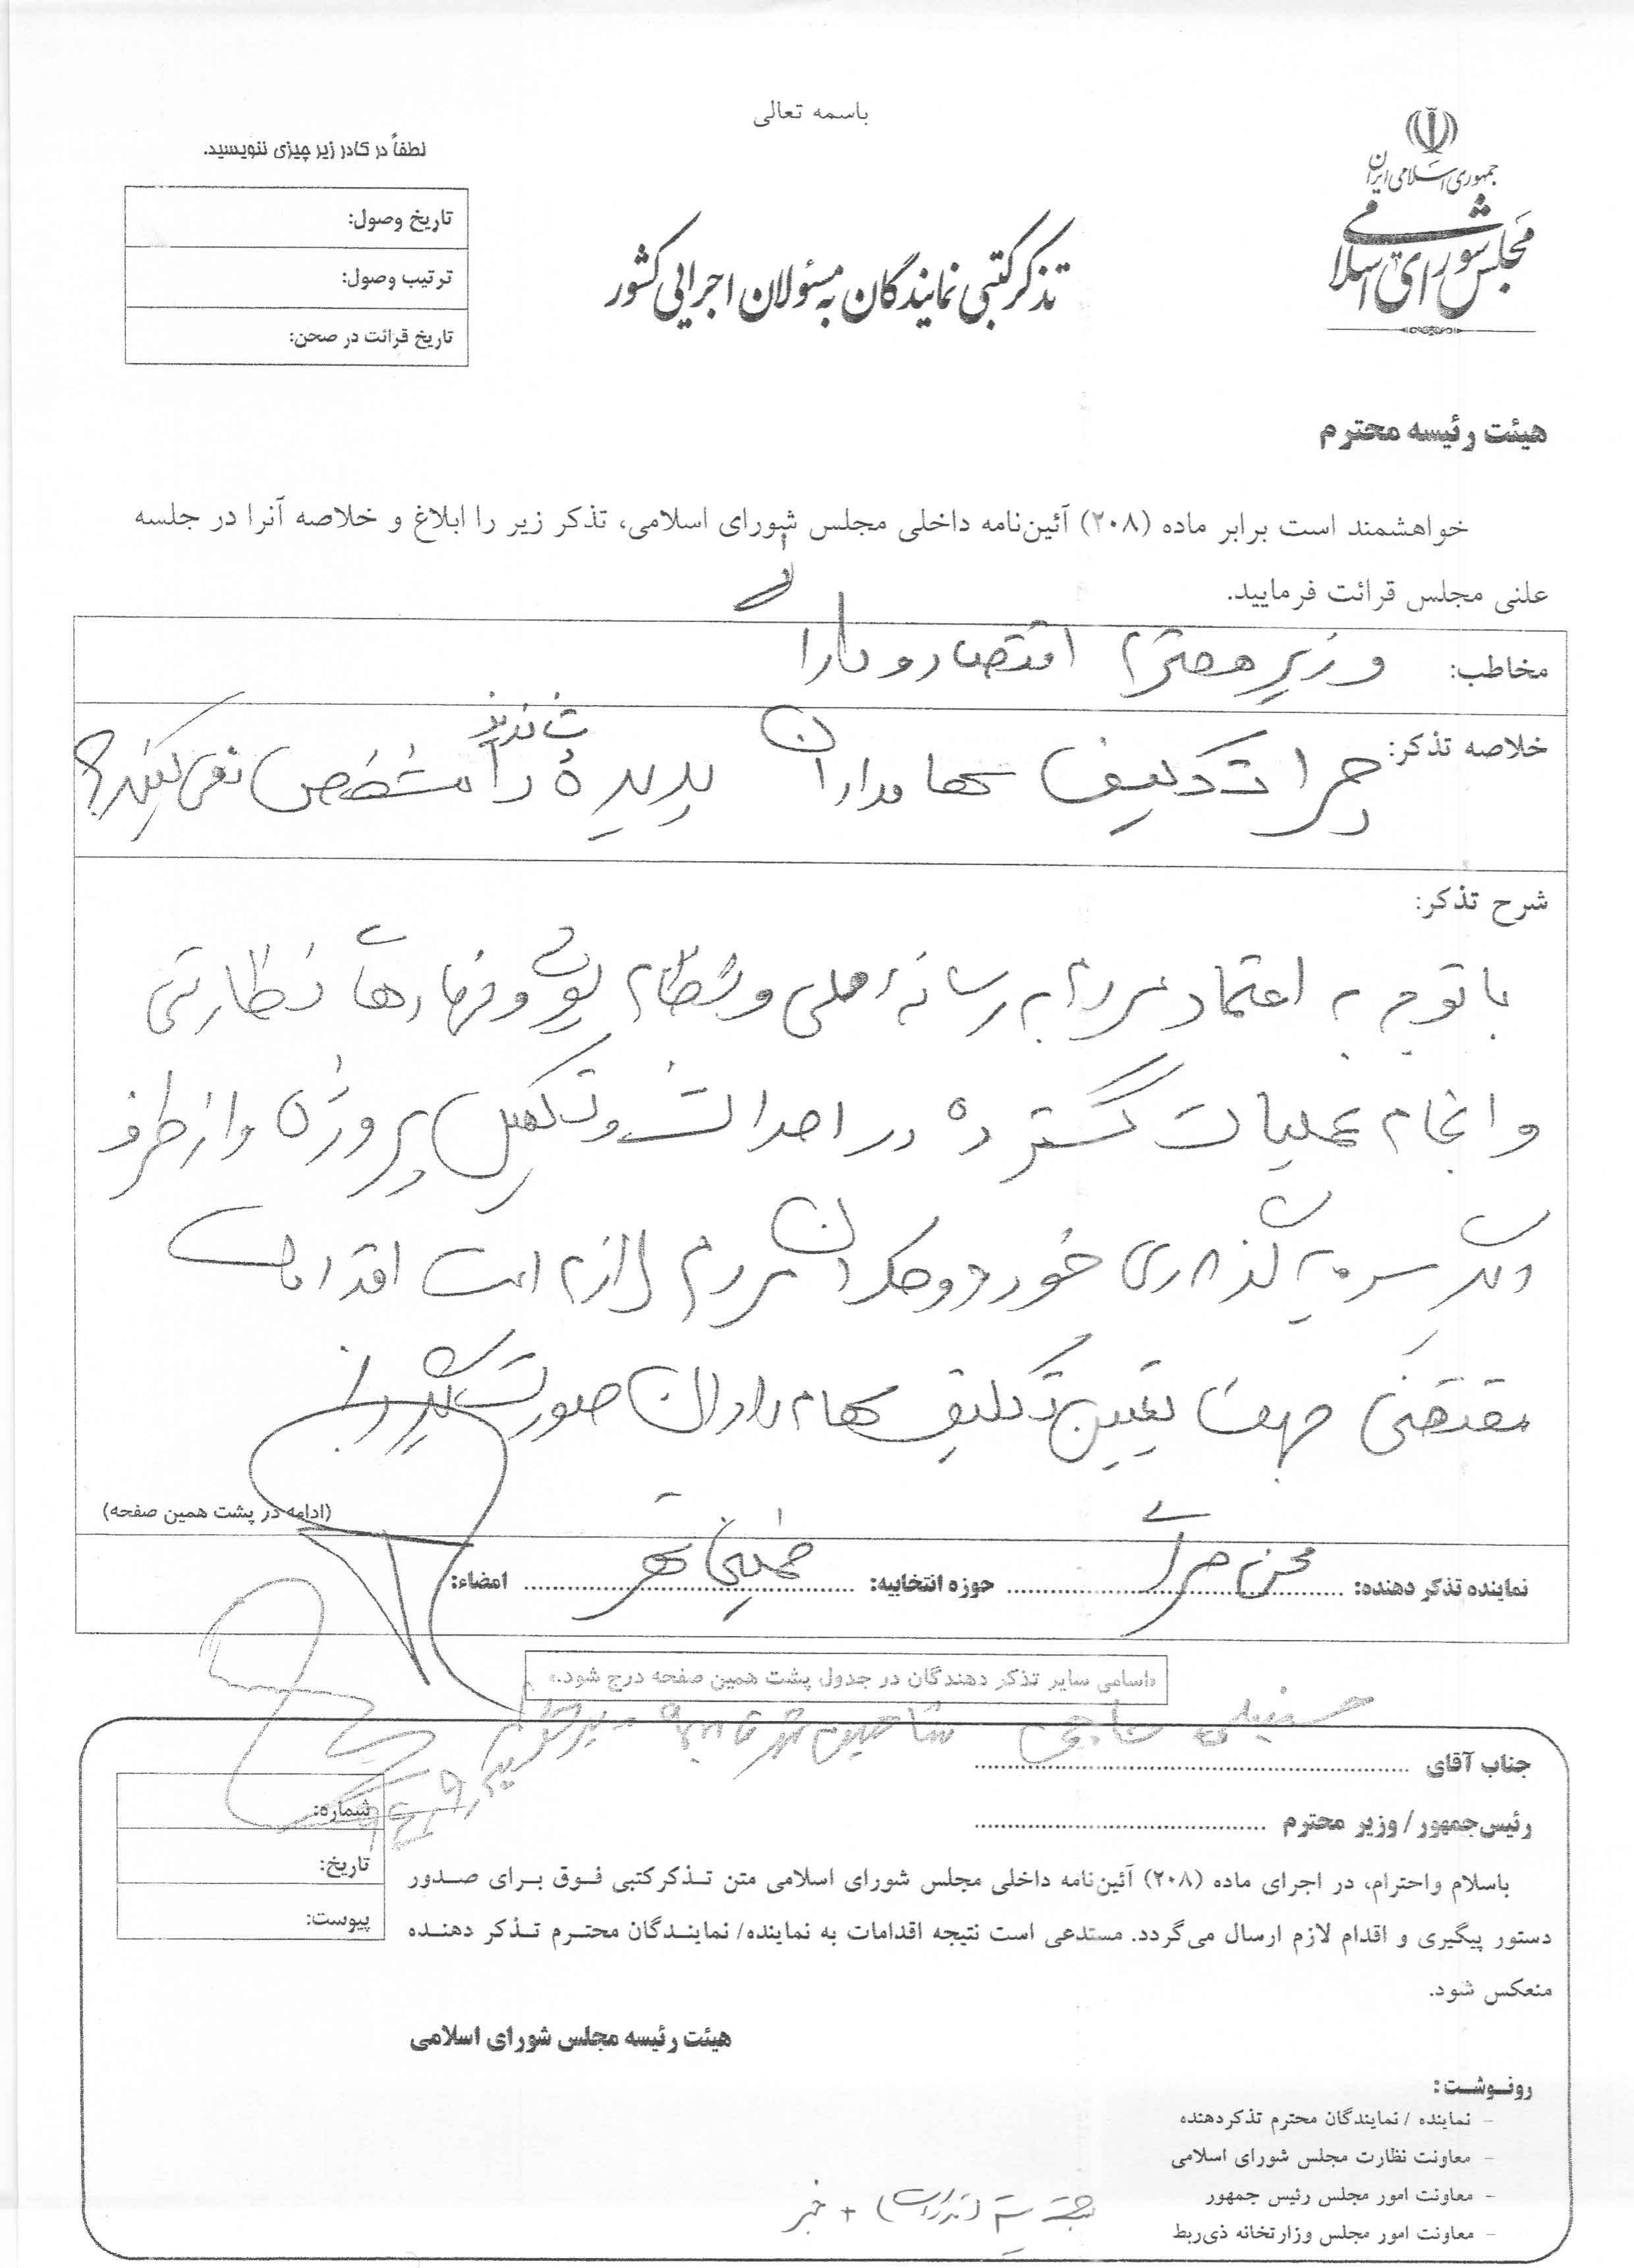 باسمه تعالی
جمهوری اسلامی ایران
مجلس شورای اسلامی
تذکر کتبی نمایندگان به مسئولان اجرایی کشور
لطفاً در کادر زیر چیزی ننویسید.
تاریخ وصول:
ترتیب وصول:
تاریخ قرائت در صحن:
هیئت رئیسه محترم
خواهشمند است برابر ماده (۲۰۸) آئین‌نامه داخلی مجلس شورای اسلامی، تذکر زیر را ابلاغ و خلاصه آنرا در جلسه
علنی مجلس قرائت فرمایید.
مخاطب: وزیر محترم اقتصاد و دارائی
خلاصه تذکر: چرا تکلیف سهامداران پدیده شاندیز را مشخص نمی کنید؟
شرح تذکر:
با توجه به اعتماد مردم به رسانه ملی و نظام پولی و نهادهای نظارتی
و انجام عملیات گسترده در احداث و تکمیل پروژه و از طرف
دیگر سرمایه گذاری خورد و کلان مردم لازم است اقدامات
مقتضی جهت تعیین تکلیف سهام داران صورت پذیرد
(ادامه در پشت همین صفحه)
نماینده تذکر دهنده: حوزه انتخابیه: خمینی شهر امضاء:
«اسامی سایر تذکر دهندگان در جدول پشت همین صفحه درج شود.»
حسینعلی حاجی شاهین شهر
جناب آقای
رئیس‌جمهور / وزیر محترم
شماره:
تاریخ:
پیوست:
باسلام واحترام، در اجرای ماده (۲۰۸) آئین‌نامه داخلی مجلس شورای اسلامی متن تذکر کتبی فوق برای صدور
دستور پیگیری و اقدام لازم ارسال می‌گردد. مستدعی است نتیجه اقدامات به نماینده/ نمایندگان محترم تذکر دهنده
منعکس شود.
هیئت رئیسه مجلس شورای اسلامی
رونوشت:
- نماینده / نمایندگان محترم تذکردهنده
- معاونت نظارت مجلس شورای اسلامی
- معاونت امور مجلس رئیس جمهور
- معاونت امور مجلس وزارتخانه ذی‌ربط